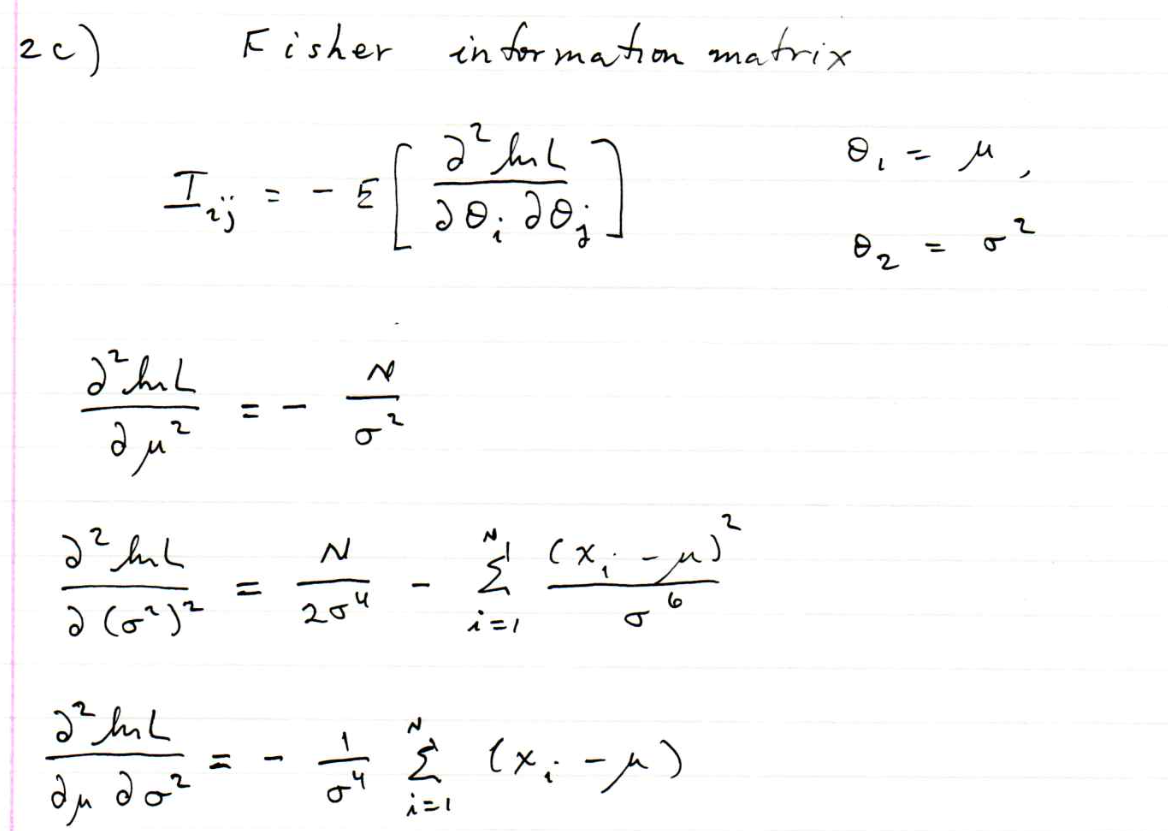 2c) Fisher information matrix
I_ij = - E [ ∂² ln L / ∂θ_i ∂θ_j ]   θ_1 = μ ,
θ_2 = σ²
∂² ln L / ∂μ² = - N / σ²
∂² ln L / ∂(σ²)² = N / 2σ⁴ - Σ_{i=1}^{N} (x_i - μ)² / σ⁶
∂² ln L / ∂μ ∂σ² = - 1/σ⁴ Σ_{i=1}^{N} (x_i - μ)